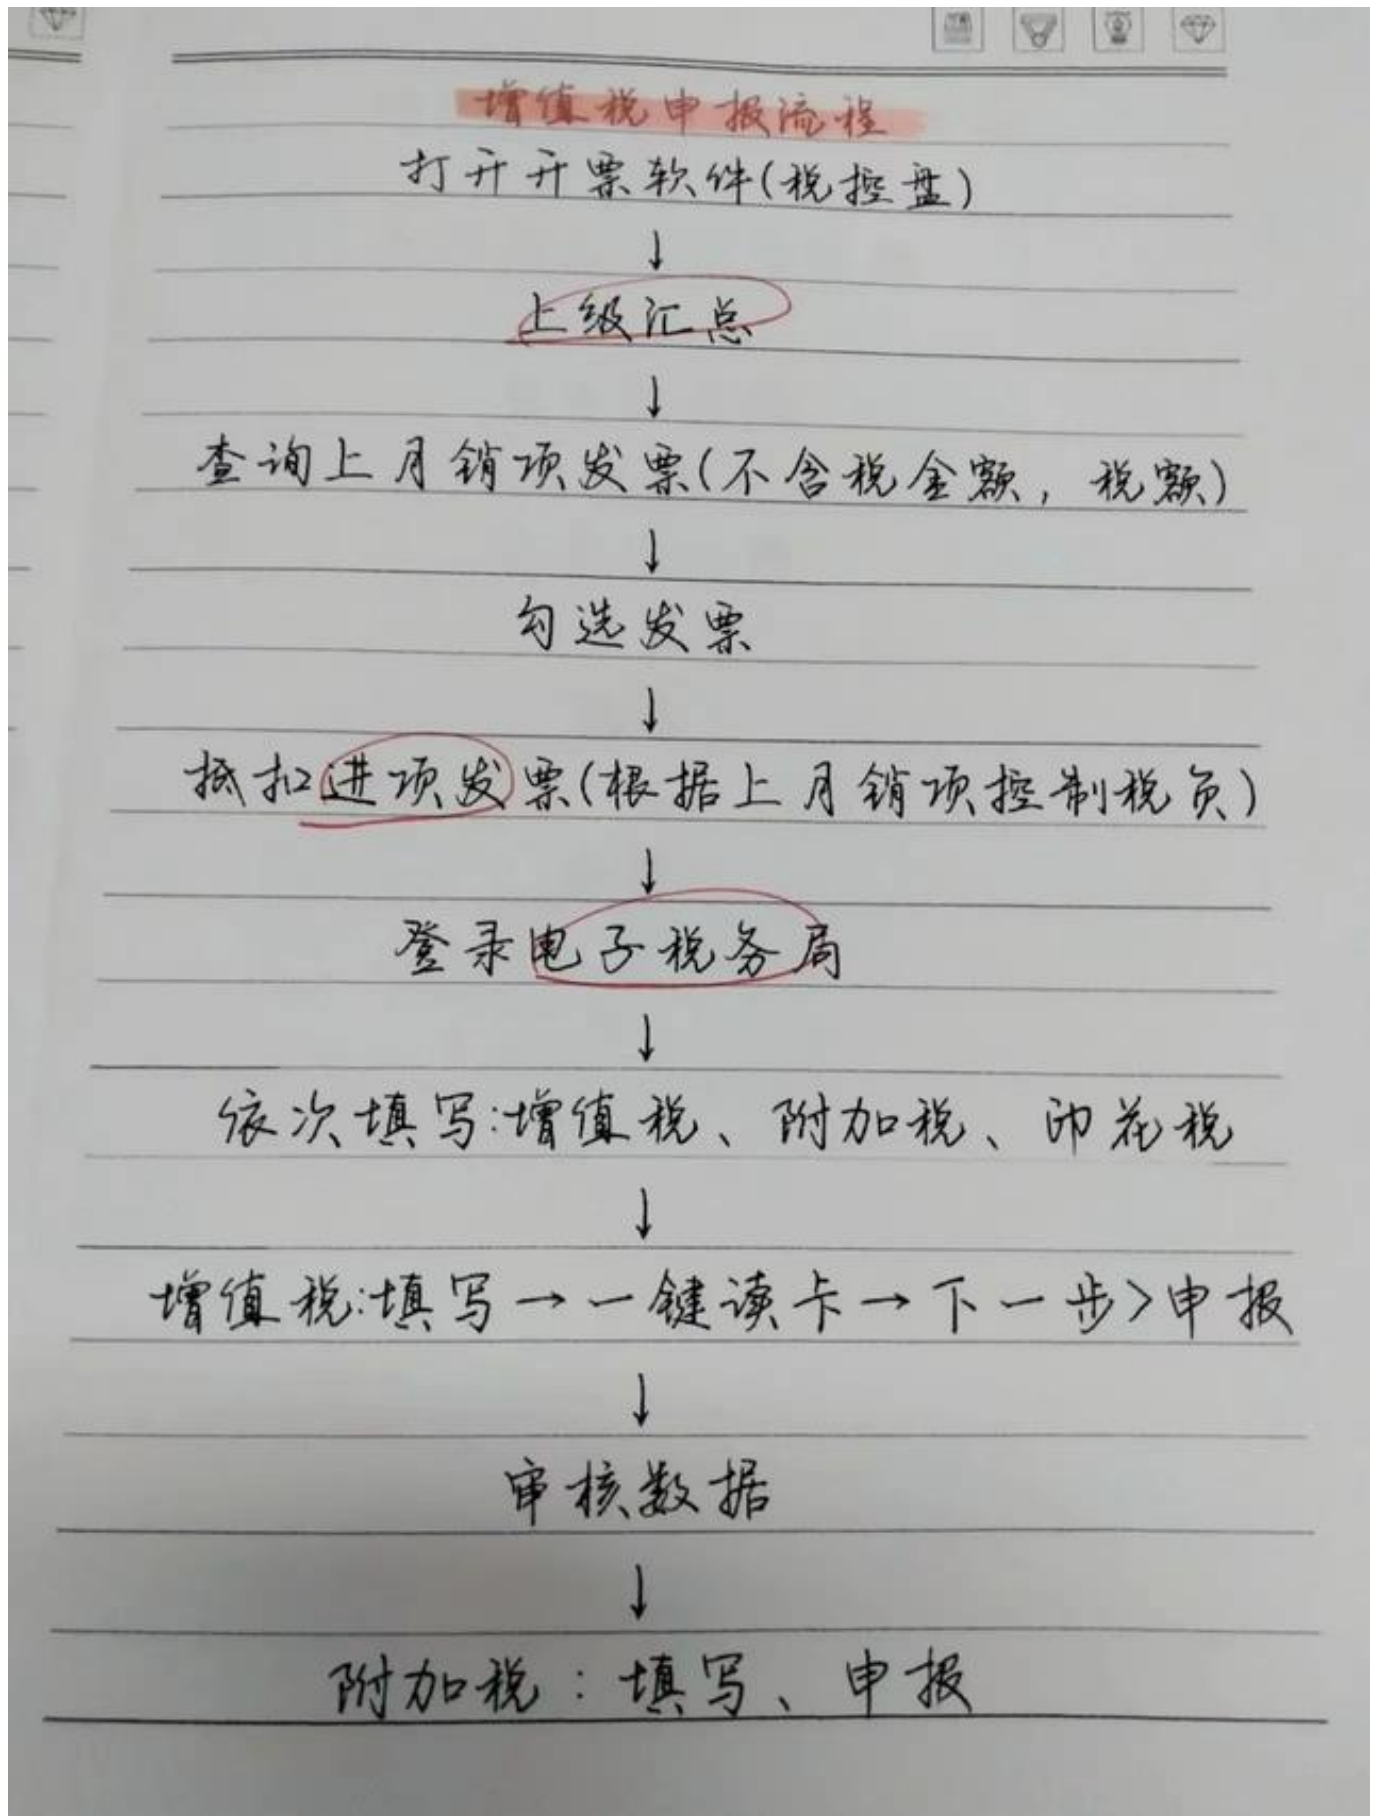 增值税申报流程
打开开票软件(税控盘)
↓
上级汇总
↓
查询上月销项发票(不含税金额，税额)
↓
勾选发票
↓
抵扣进项发票(根据上月销项控制税负)
↓
登录电子税务局
↓
依次填写:增值税、附加税、印花税
↓
增值税:填写→一键读卡→下一步>申报
↓
审核数据
↓
附加税：填写、申报